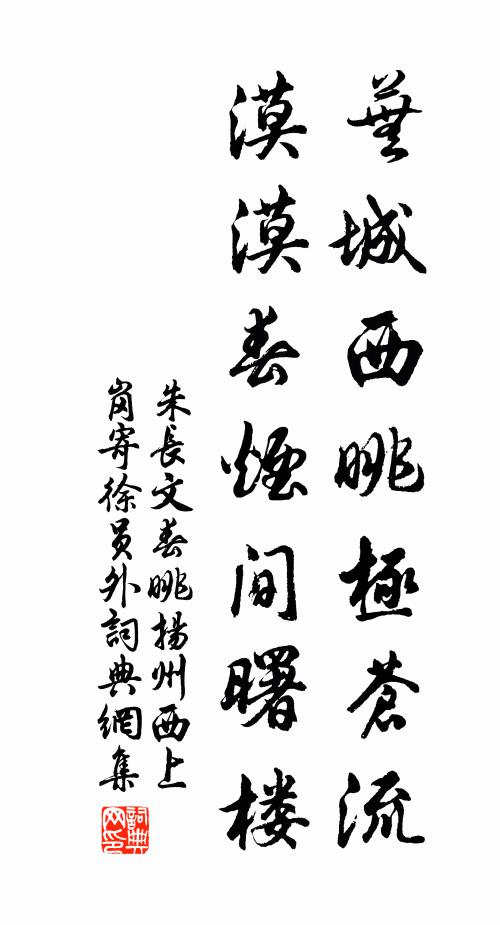 蕪城西眺極蒼流
漠漠春煙間曙楼
朱長文春眺揚州西上
崗寄徐員外詞典網集
詞典网印